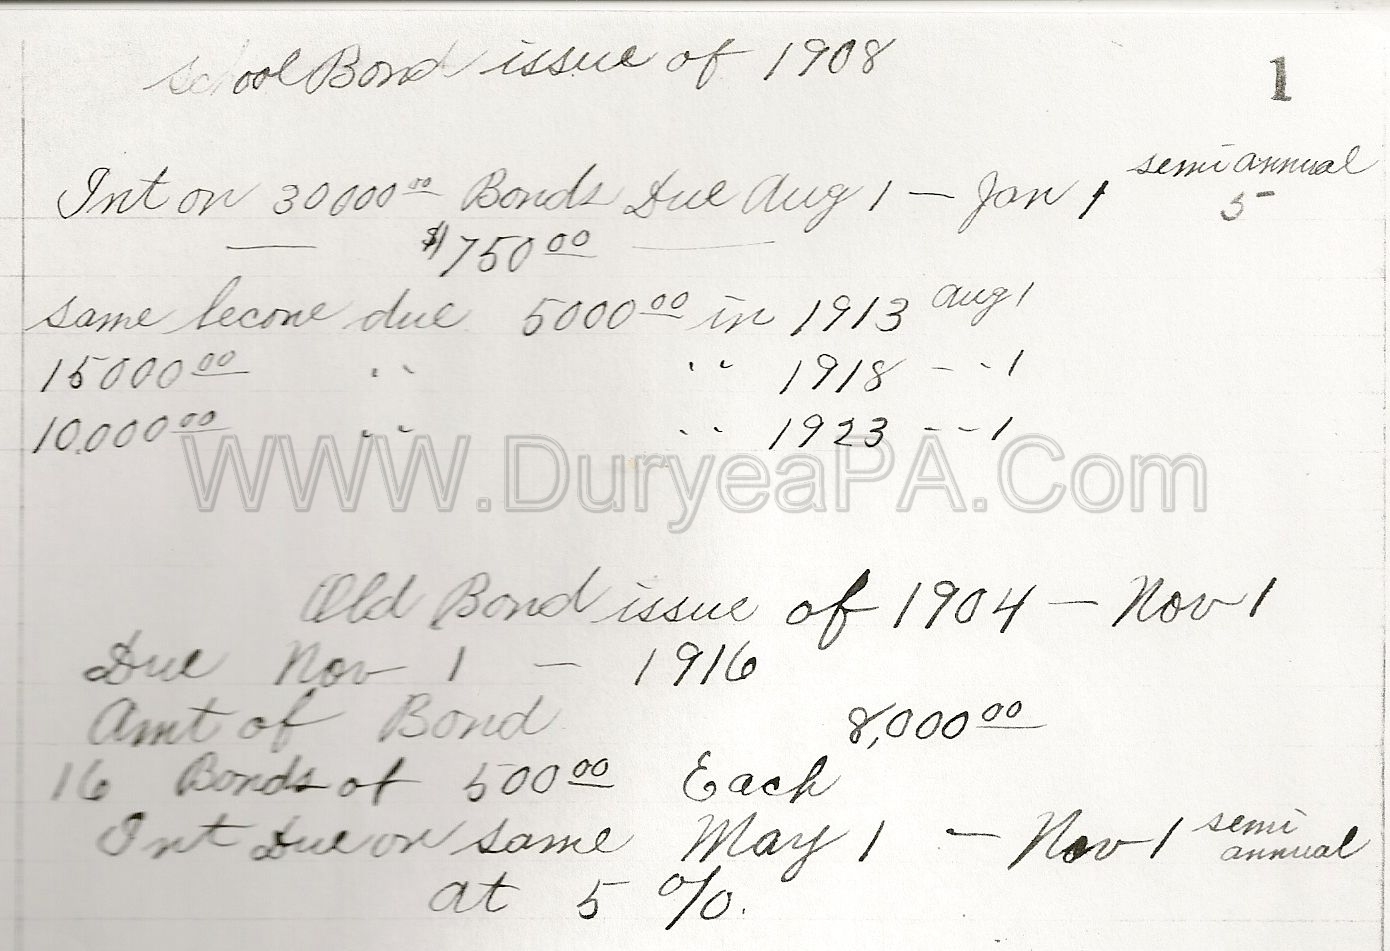 school Bond issue of 1908
1
Int on 30000.00 Bonds Due Aug 1 — Jan 1 semi annual 5
$750.00
same become due 5000.00 in 1913 Aug 1
15000.00 " " 1918 - - 1
10,000.00 " " 1923 - - 1
WWW.DuryeaPA.Com
Old Bond issue of 1904 — Nov 1
Due Nov 1 — 1916
Amt of Bond 8,000.00
16 Bonds of 500.00 Each
Int Due on same May 1 — Nov 1 semi annual
at 5 %.